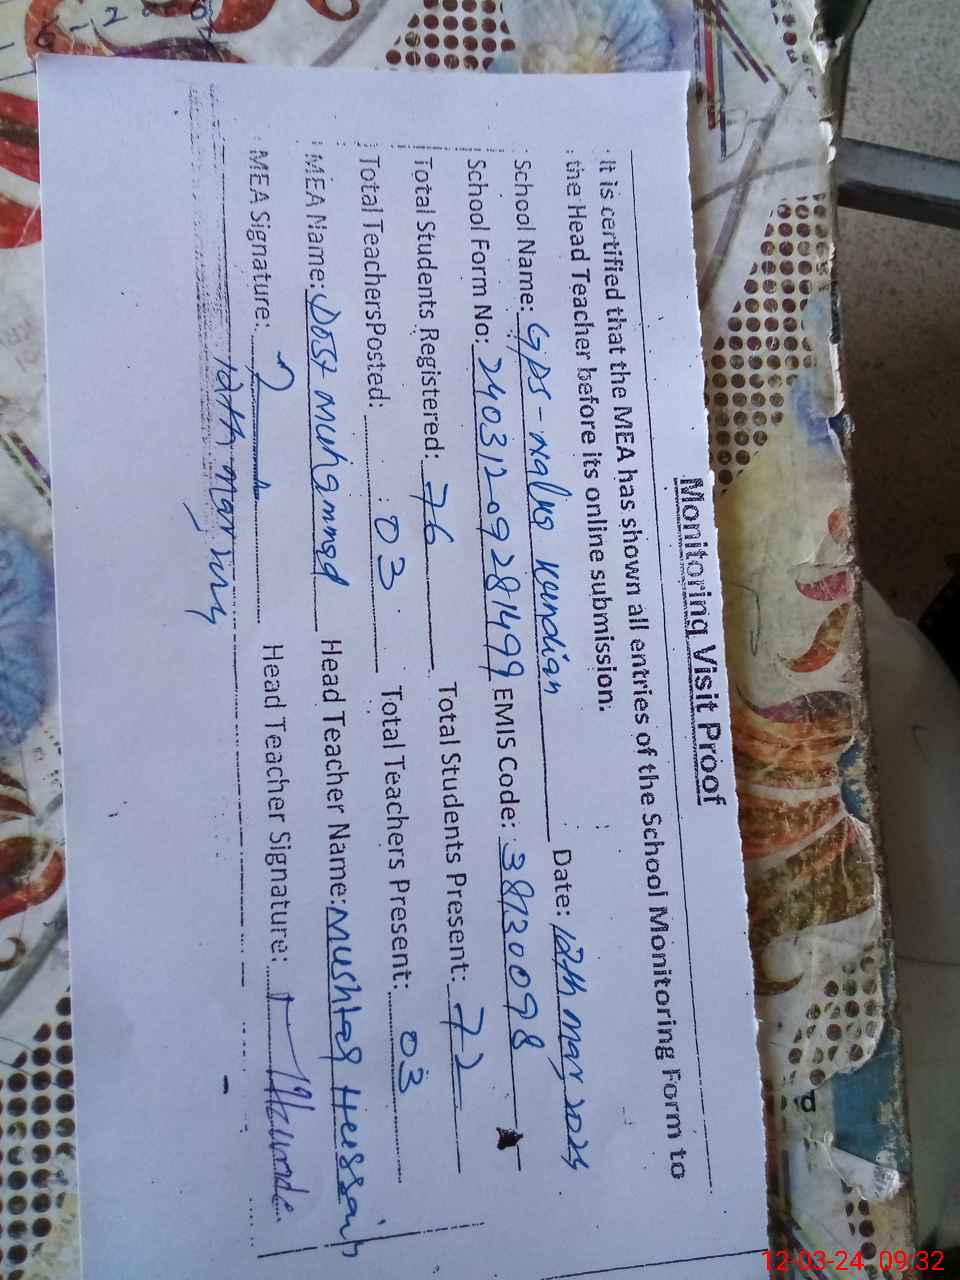 Monitoring Visit Proof
It is certified that the MEA has shown all entries of the School Monitoring Form to
the Head Teacher before its online submission.
School Name: GPS - Date: 12th Mar 2024
School Form No: 24031209281499 EMIS Code: 38130098
Total Students Registered: 76 Total Students Present: 72
Total TeachersPosted: 03 Total Teachers Present: 03
MEA Name: Dost Muhammad Head Teacher Name: Mushtaq Hussain
MEA Signature: Head Teacher Signature:
12th Mar
12-03-24 09:32